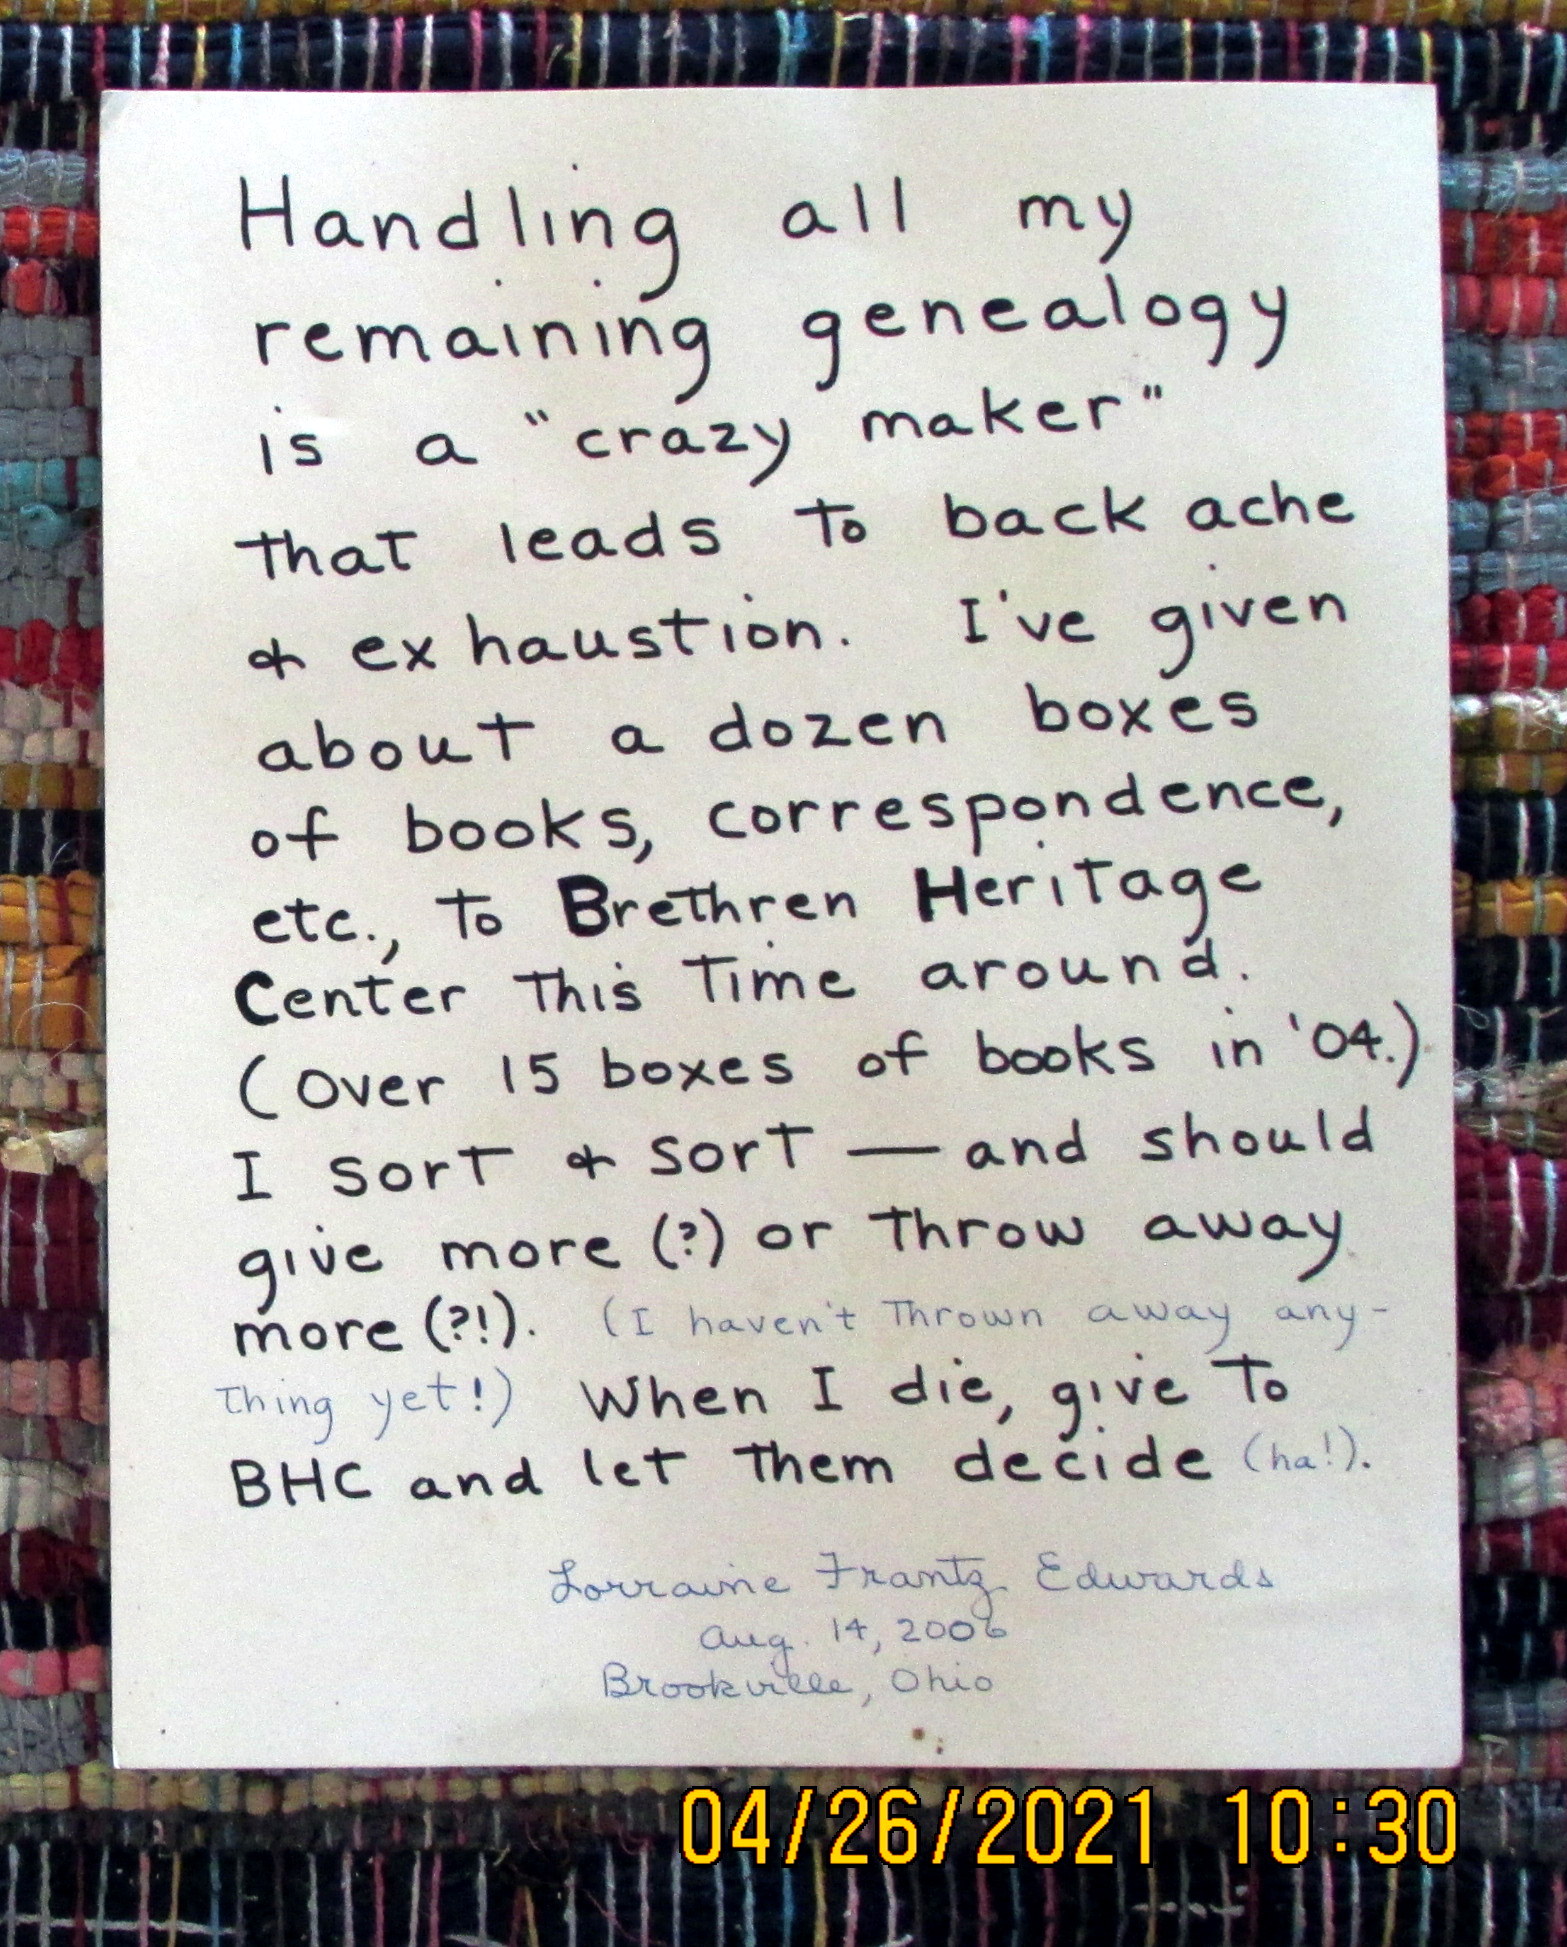 Handling all my
remaining genealogy
is a "crazy maker"
that leads to back ache
& exhaustion. I've given
about a dozen boxes
of books, correspondence,
etc., to Brethren Heritage
Center this time around.
(Over 15 boxes of books in '04.)
I sort & sort — and should
give more (?) or throw away
more (?!). (I haven't thrown away any-
thing yet!) When I die, give to
BHC and let them decide (ha!).
Lorraine Frantz Edwards
Aug. 14, 2006
Brookville, Ohio
04/26/2021 10:30